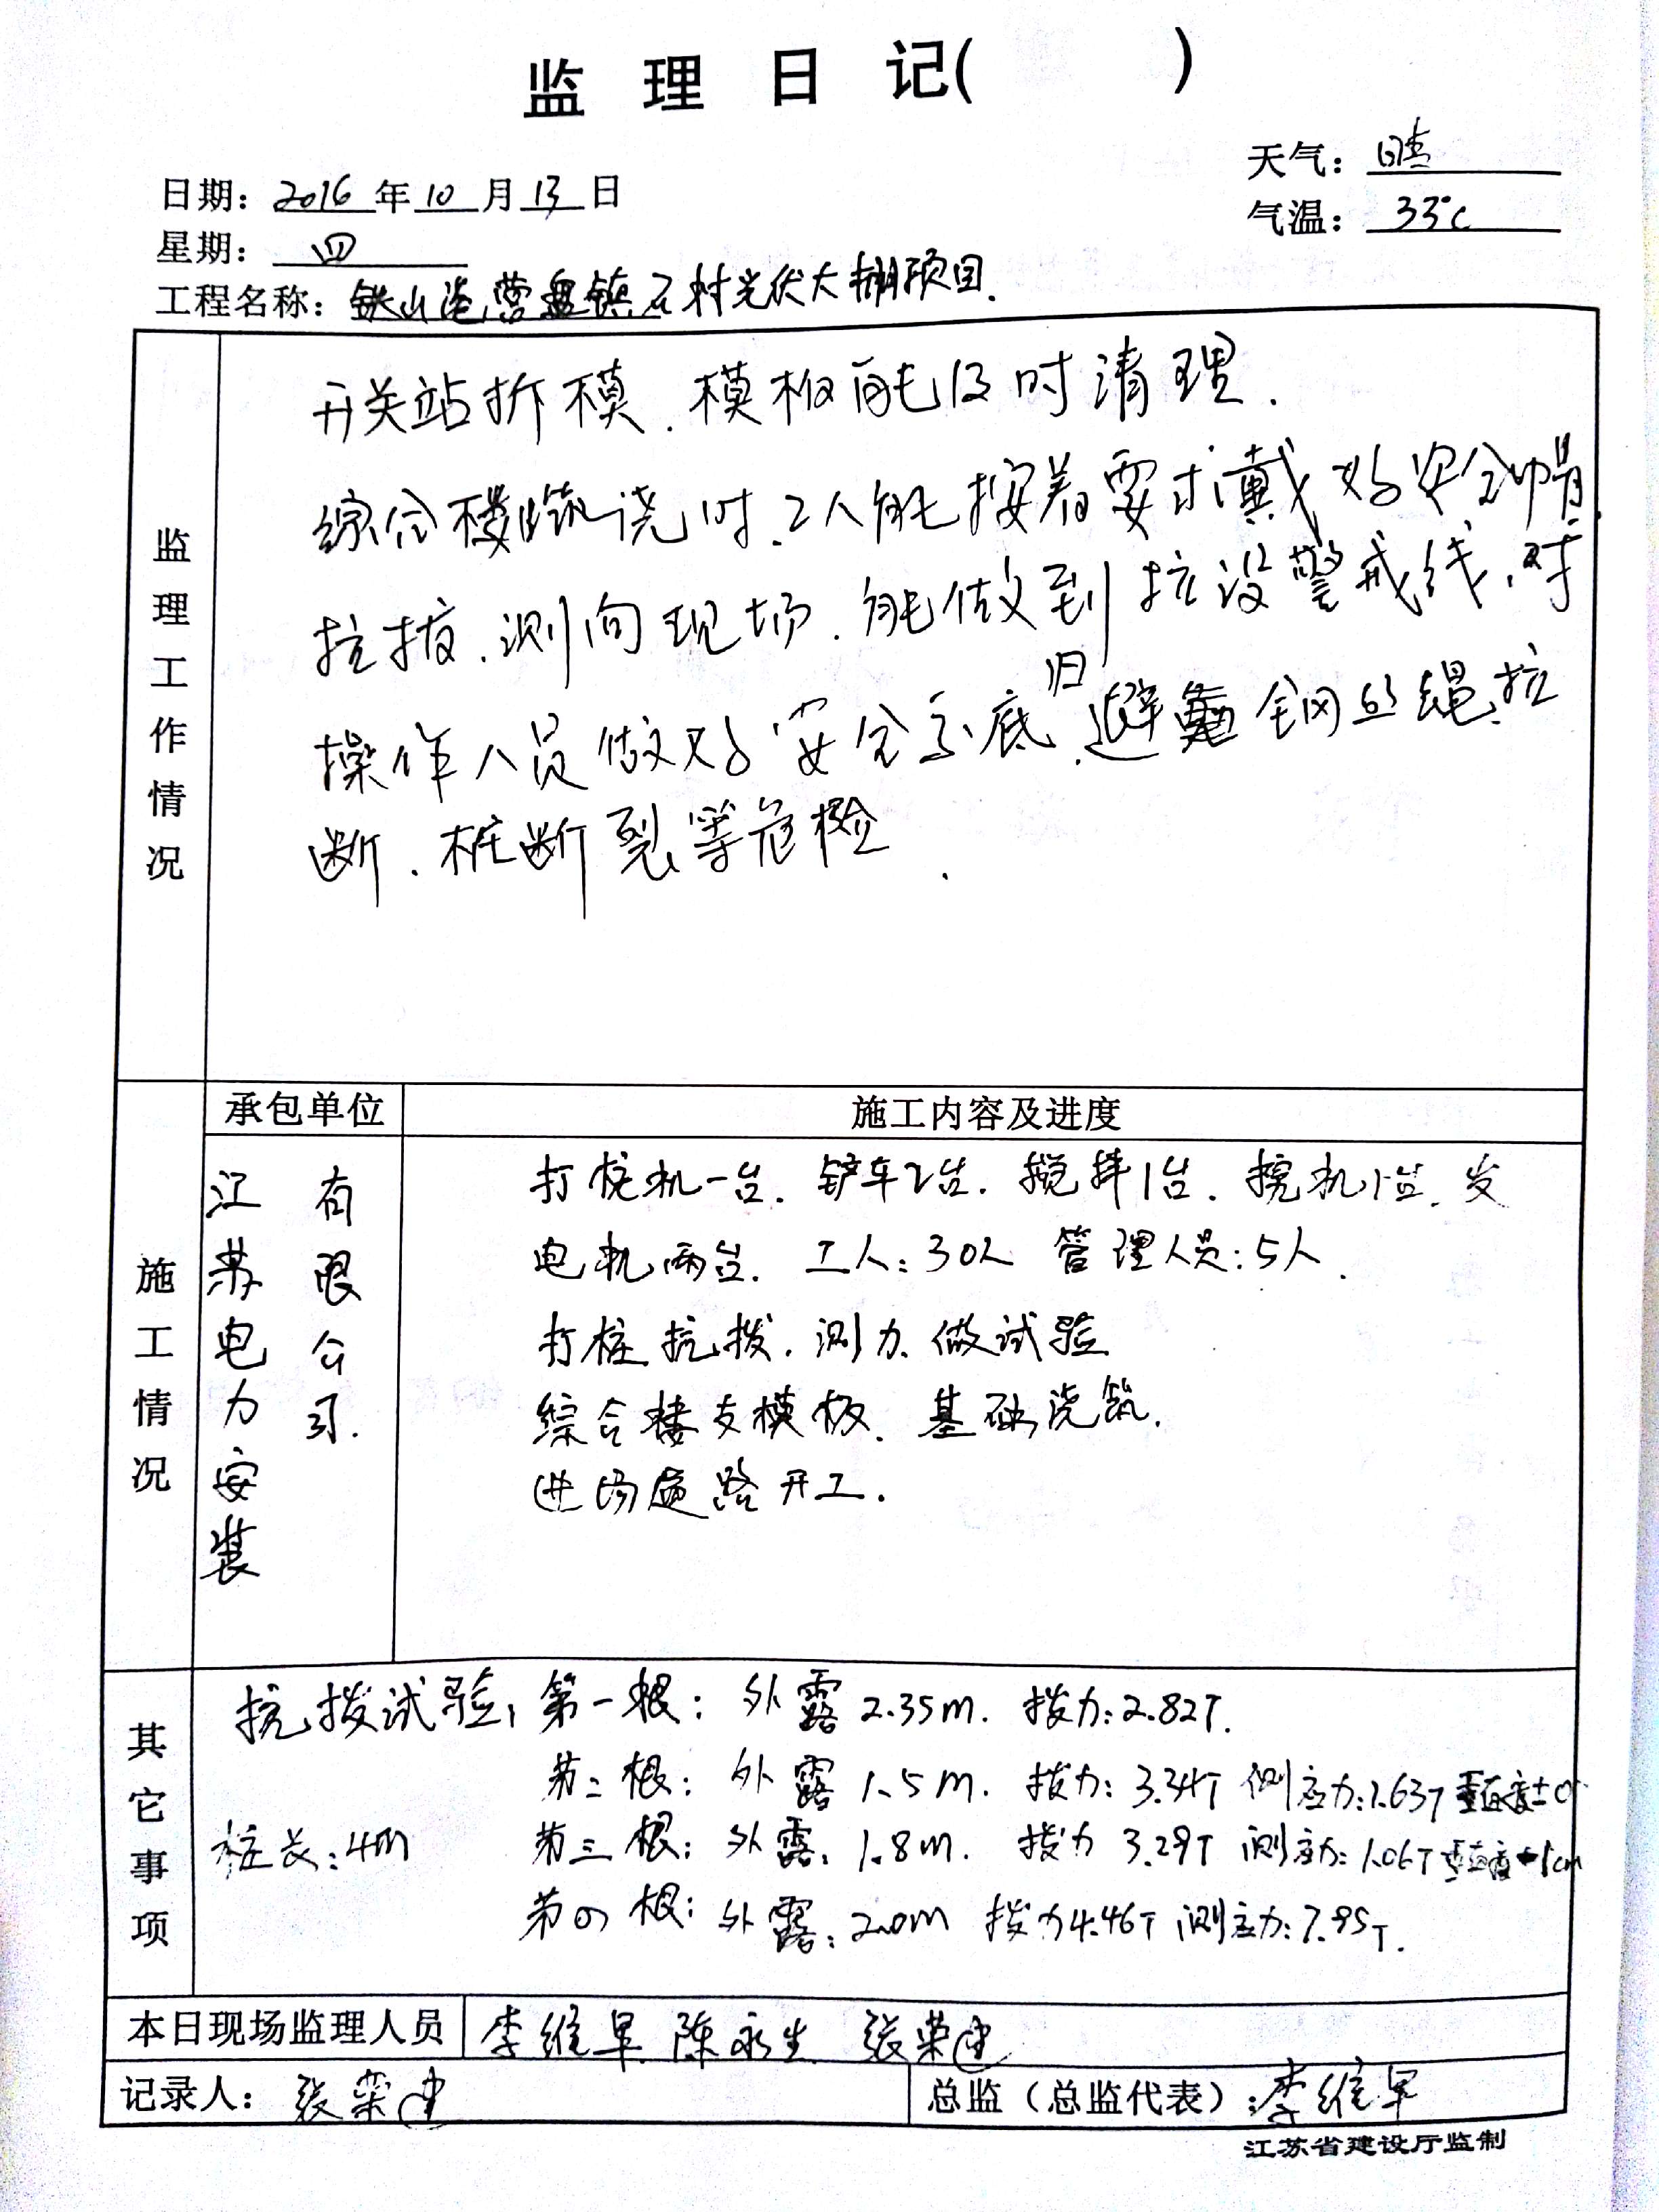 监理日记( )
天气：晴
日期：2016年10月13日
气温：33℃
星期：四
工程名称：铁山港营盘镇石村光伏大棚项目.
监理工作情况
开关站拆模.模板能及时清理.
综合楼筑浇时.工人能按着要求戴好安全帽.
拉拔.测向现场.能做到拉设警戒线.对
操作人员做好安全交底.归避钢丝绳.拉
断.桩断裂等危险.
施工情况
承包单位
施工内容及进度
江苏电力安装
有限公司.
打桩机一台.铲车2台.搅拌1台.挖机1台.发
电机两台. 工人:30人 管理人员:5人.
打桩抗拨.测力.做试验
综合楼支模板.基础浇筑.
进场道路开工.
其它事项
抗拨试验, 第一根: 外露2.35m. 拨力:2.82T.
第二根: 外露1.5m. 拨力: 3.34T 侧应力:1.63T 垂直度±0
桩长:4m 第三根: 外露:1.8m. 拨力 3.29T 测应力:1.06T 垂直度 1cm
第四根: 外露:2.0m 拨力4.46T 测应力:7.95T.
本日现场监理人员 李维早 陈永生 张荣建
记录人：张荣建 总监（总监代表）:李维早
江苏省建设厅监制